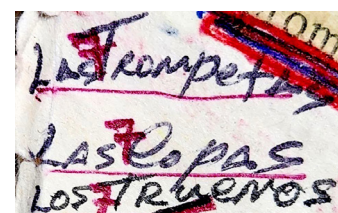 om
LAS 7 Trompetas
LAS 7 Copas
LOS 7 TRUENOS